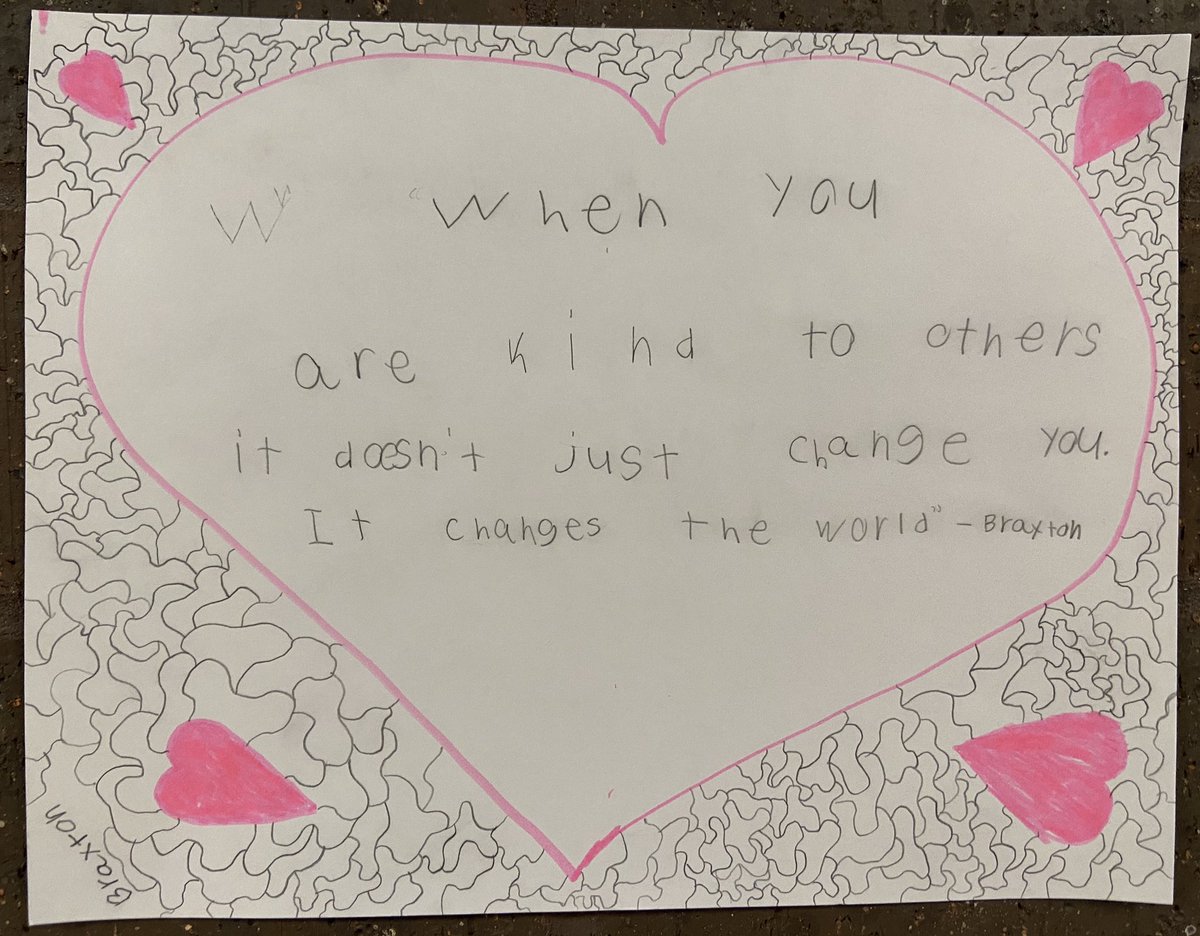 W" "When you
are kind to others
it doesn't just change you.
It changes the world" - Braxton
Braxton